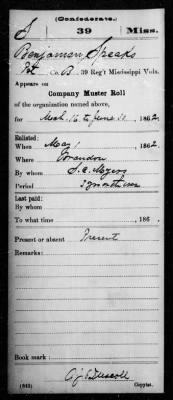 (Confederate.)
S 39 Miss.
Benjamen Speaks
Pvt, Co. B, 39 Reg't Mississippi Vols.
Appears on
Company Muster Roll
of the organization named above,
for Mch 16 to June 30, 1862.
Enlisted:
When May 1, 1862.
Where Brandon
By whom S. C. Myers
Period
Last paid:
By whom
To what time , 186 .
Present or absent Present
Remarks:
Book mark:
(642) Copyist.